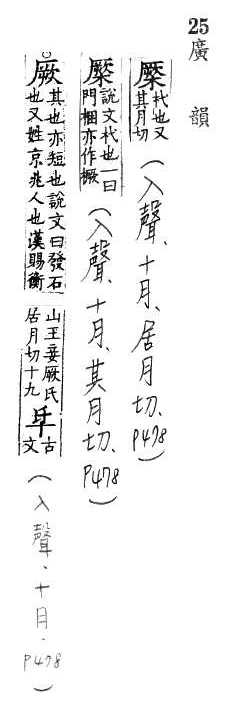 25 廣韻
橜 杙也又其月切 (入聲、十月、居月切、P478)
橜 說文杙也一曰門梱亦作橛 (入聲、十月、其月切、P478)
厥 其也亦短也說文曰發石也又姓京兆人也漢賜衡山王妾厥氏居月切十九 古文 (入聲、十月、P478)